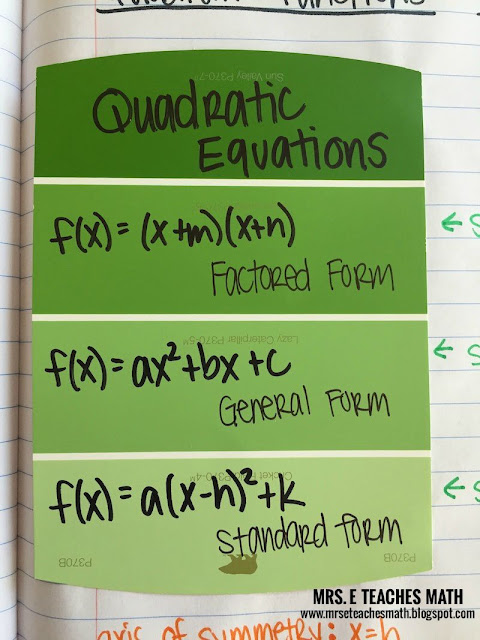 Functions
Sun Valley P370-7
Quadratic
Equations
f(x) = (x+m)(x+n)
Factored Form
Lazy Caterpillar P370-5
f(x) = ax²+bx+c
General Form
P370-4
f(x) = a(x-h)²+k
standard form
P370B P370B
MRS. E TEACHES MATH
www.mrseteachesmath.blogspot.com
axis of symmetry: x=h